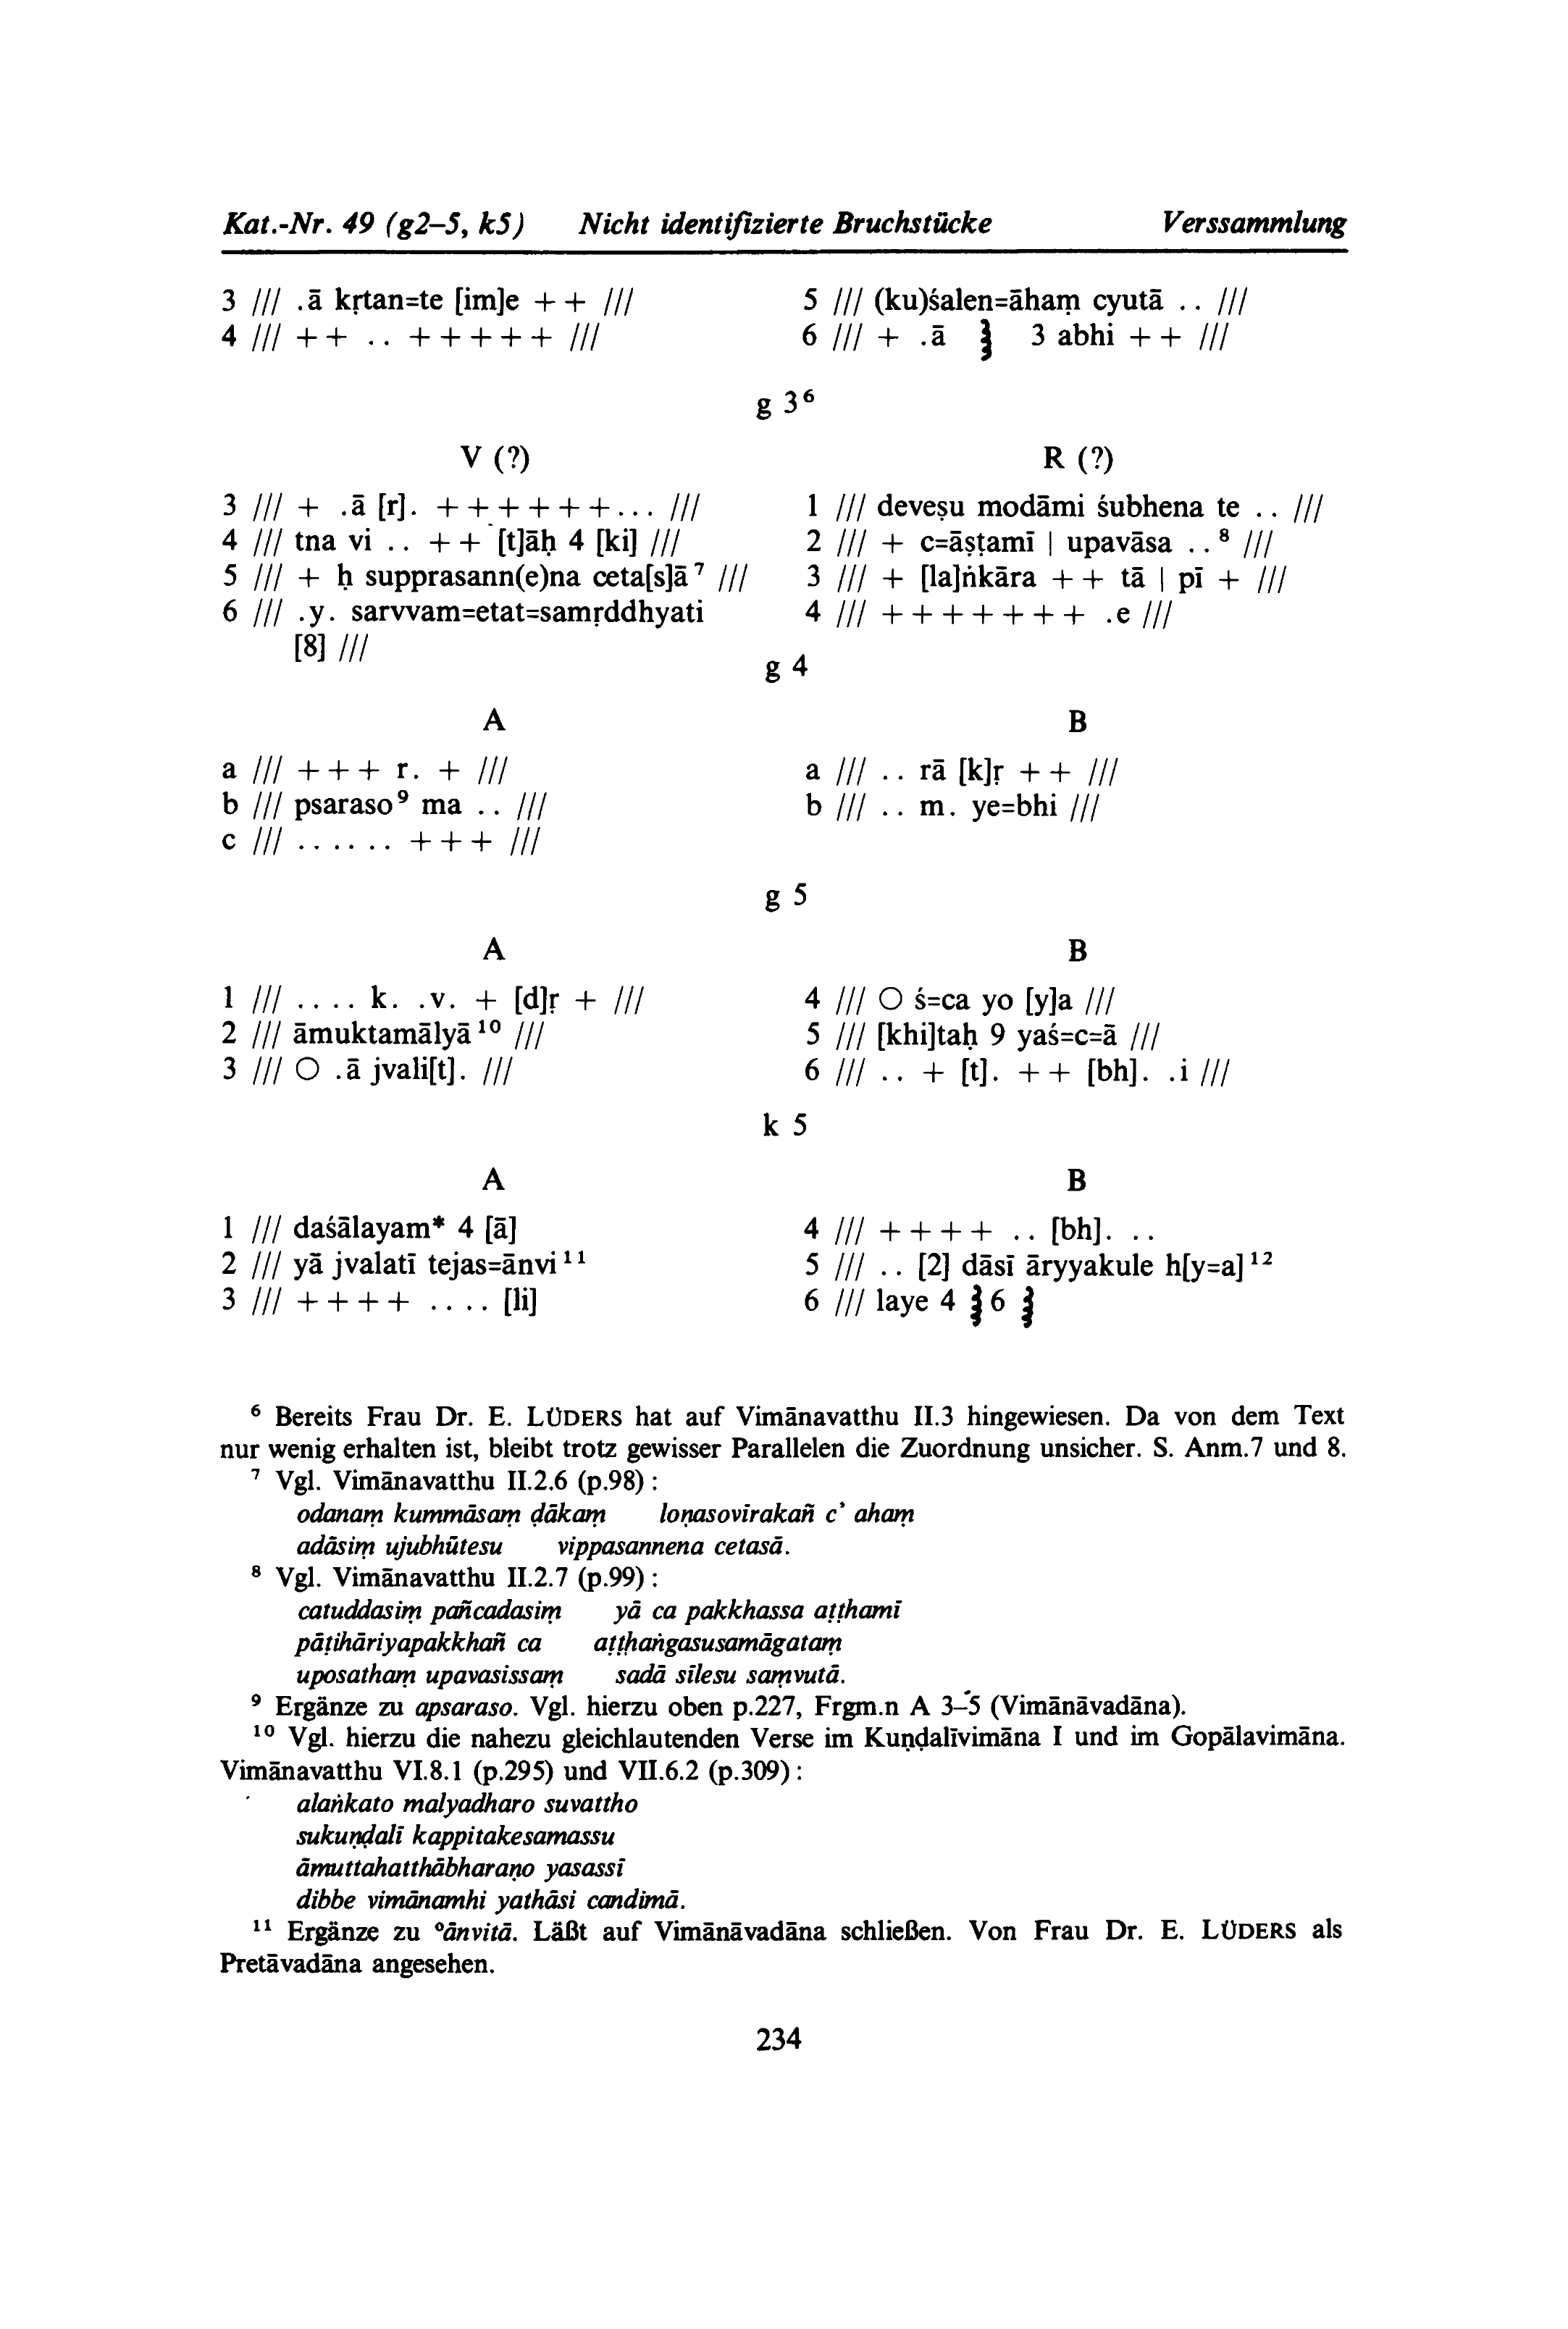 Kat.-Nr. 49 (g2–5, k5) Nicht identifizierte Bruchstücke Verssammlung
3 /// .ā kṛtan=te [im]e + + ///
4 /// + + .. + + + + + ///
5 /// (ku)śalen=āhaṃ cyutā .. ///
6 /// + .ā 3 abhi + + ///
g 3⁶
V (?)
3 /// + .ā [r]. + + + + + + ... ///
4 /// tna vi .. + + [t]āḥ 4 [ki] ///
5 /// + ḥ supprasann(e)na ceta[s]ā⁷ ///
6 /// .y. sarvvam=etat=samṛddhyati
[8] ///
R (?)
1 /// deveṣu modāmi śubhena te .. ///
2 /// + c=āṣṭamī | upavāsa ..⁸ ///
3 /// + [la]ṅkāra + + tā | pī + ///
4 /// + + + + + + + .e ///
g 4
A
a /// + + + r. + ///
b /// psaraso⁹ ma .. ///
c /// ...... + + + ///
B
a /// .. rā [k]ṛ + + ///
b /// .. m. ye=bhi ///
g 5
A
1 /// .... k. .v. + [d]ṛ + ///
2 /// āmuktamālyā¹⁰ ///
3 /// O .ā jvali[t]. ///
B
4 /// O ś=ca yo [y]a ///
5 /// [khi]taḥ 9 yaś=c=ā ///
6 /// .. + [t]. + + [bh]. .i ///
k 5
A
1 /// daśālayam* 4 [ā]
2 /// yā jvalatī tejas=ānvi¹¹
3 /// + + + + .... [li]
B
4 /// + + + + .. [bh]. ..
5 /// .. [2] dāsī āryyakule h[y=a]¹²
6 /// laye 4 6
⁶ Bereits Frau Dr. E. LÜDERS hat auf Vimānavatthu II.3 hingewiesen. Da von dem Text
nur wenig erhalten ist, bleibt trotz gewisser Parallelen die Zuordnung unsicher. S. Anm.7 und 8.
⁷ Vgl. Vimānavatthu II.2.6 (p.98) :
odanaṃ kummāsaṃ ḍākaṃ loṇasovīrakañ c' ahaṃ
adāsiṃ ujubhūtesu vippasannena cetasā.
⁸ Vgl. Vimānavatthu II.2.7 (p.99) :
catuddasiṃ pañcadasiṃ yā ca pakkhassa aṭṭhamī
pāṭihāriyapakkhañ ca aṭṭhaṅgasusamāgataṃ
uposathaṃ upavasissaṃ sadā sīlesu saṃvutā.
⁹ Ergänze zu apsaraso. Vgl. hierzu oben p.227, Frgm.n A 3–5 (Vimānāvadāna).
¹⁰ Vgl. hierzu die nahezu gleichlautenden Verse im Kuṇḍalīvimāna I und im Gopālavimāna.
Vimānavatthu VI.8.1 (p.295) und VII.6.2 (p.309) :
alaṅkato malyadharo suvattho
sukuṇḍalī kappitakesamassu
āmuttahatthābharaṇo yasassī
dibbe vimānamhi yathāsi candimā.
¹¹ Ergänze zu °ānvitā. Läßt auf Vimānāvadāna schließen. Von Frau Dr. E. LÜDERS als
Pretāvadāna angesehen.
234